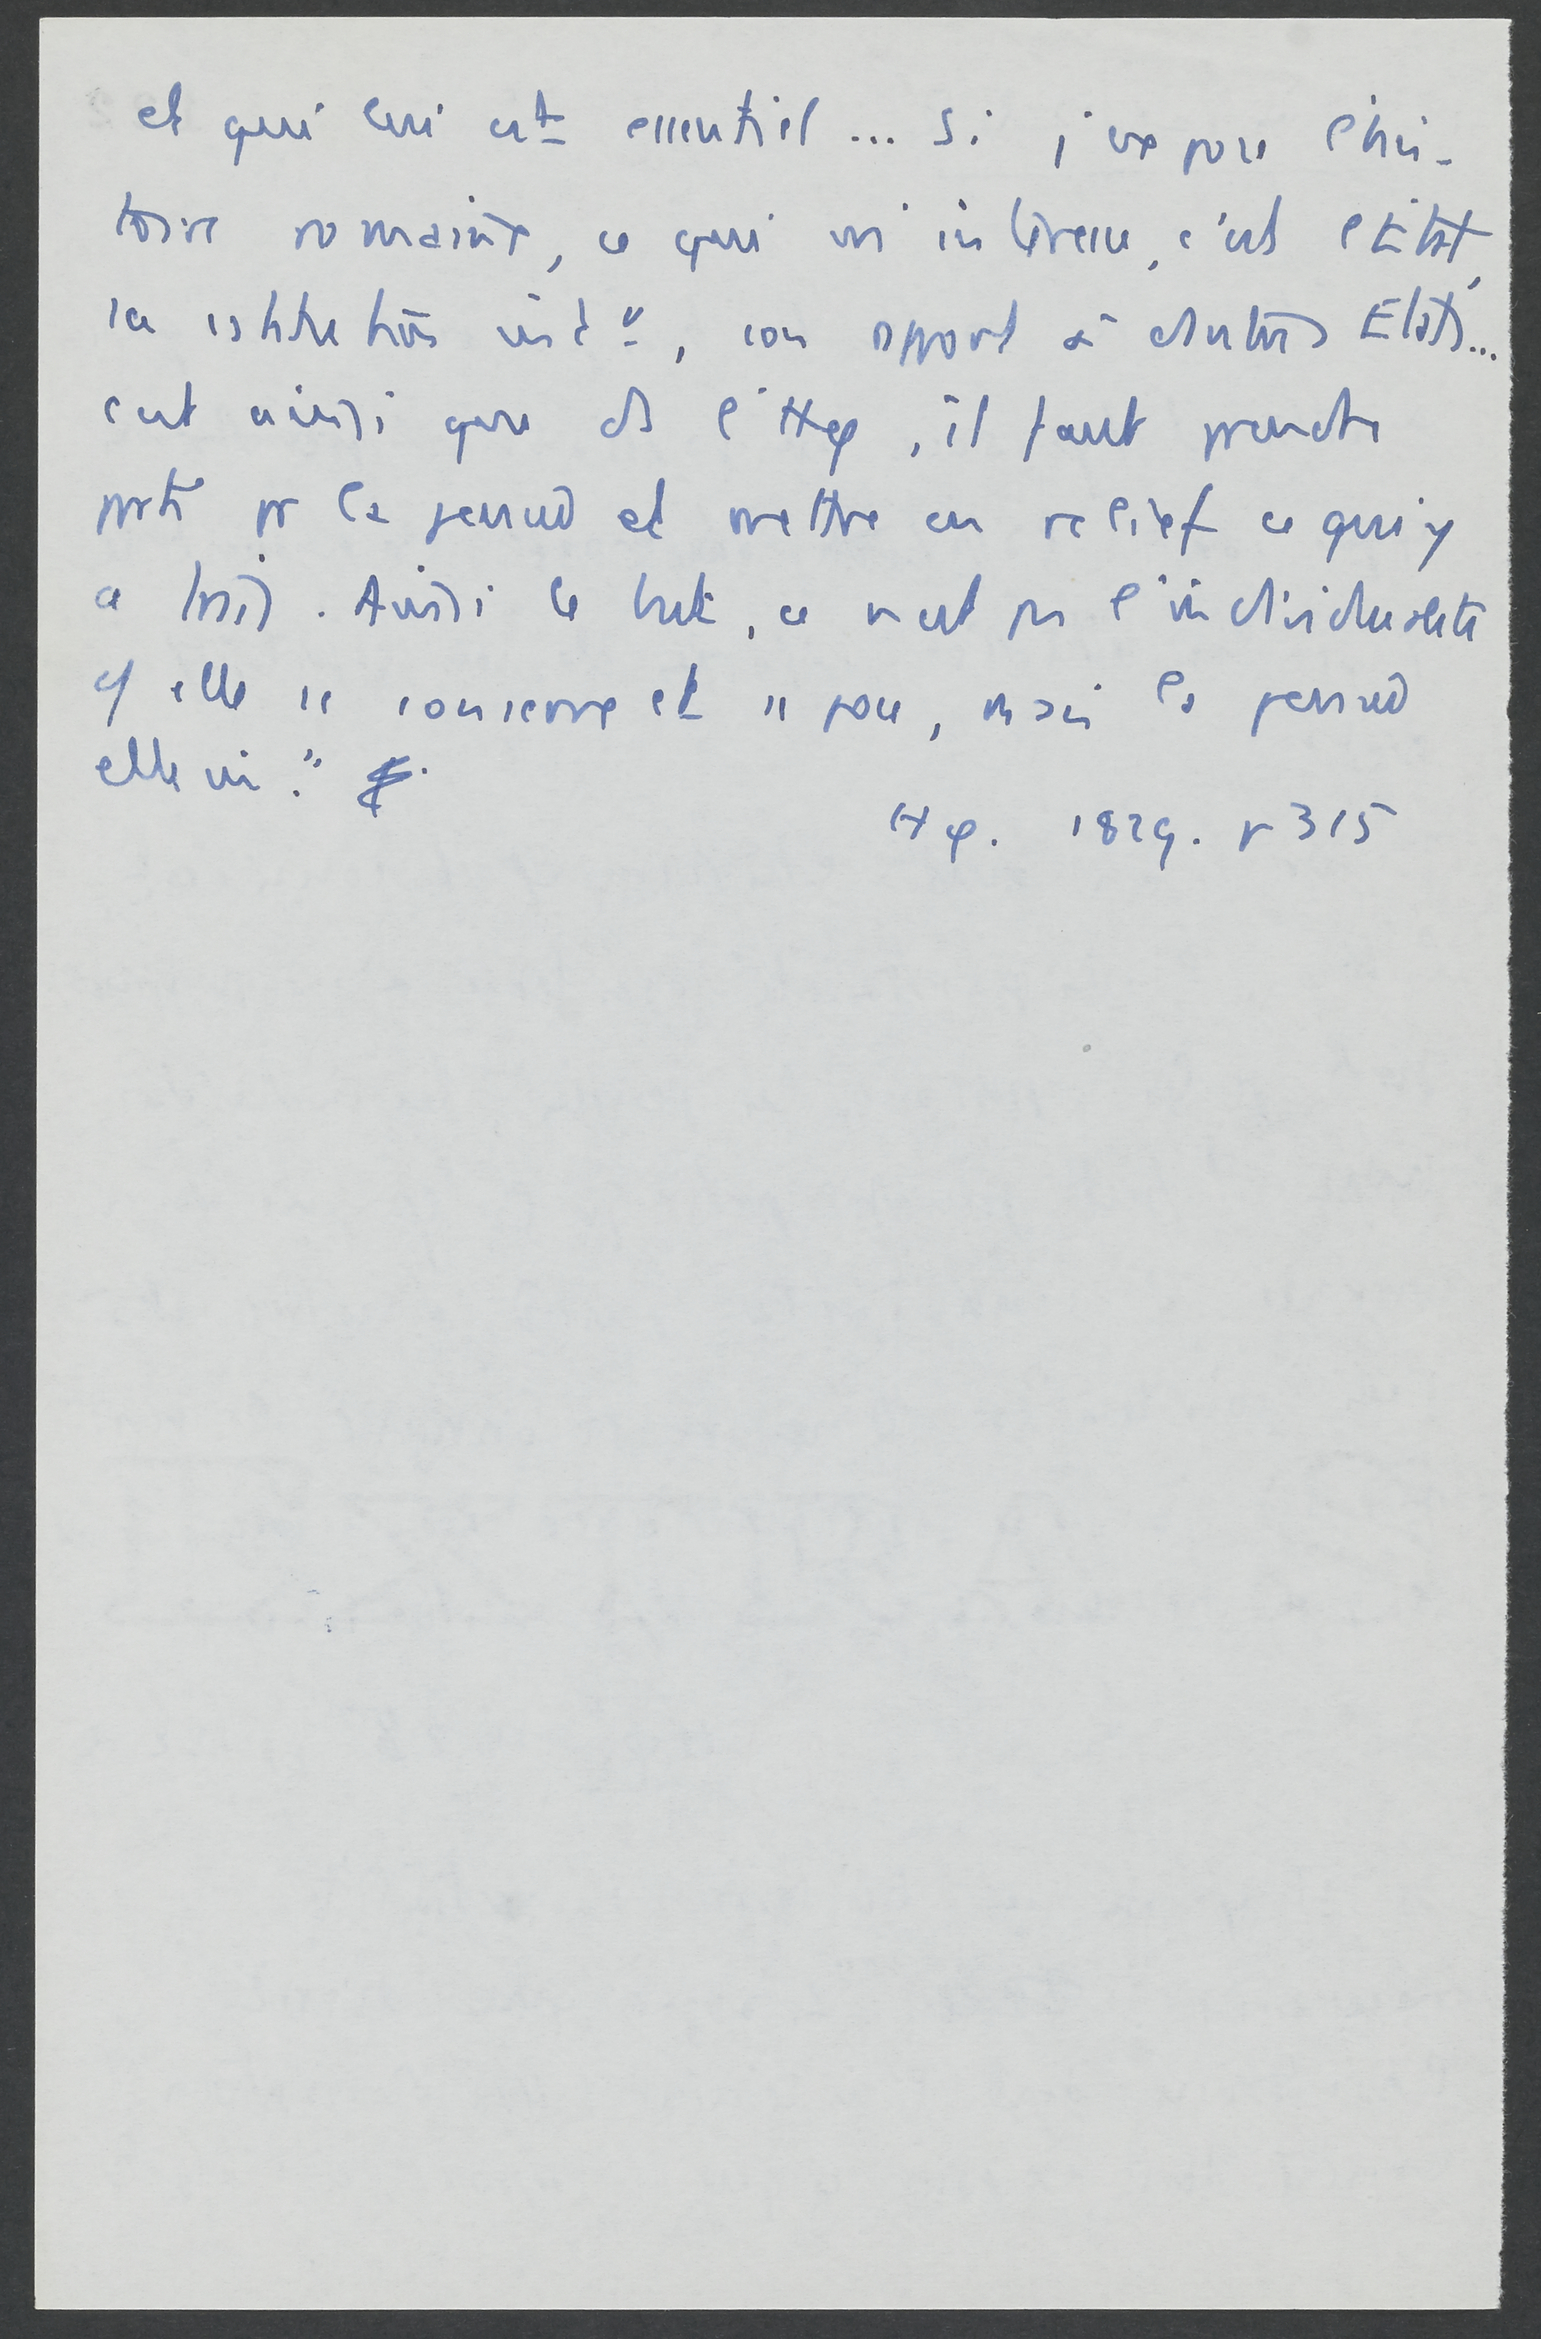 et qui lui est essentiel ... Si j'expose l'his-
toire romaine, ce qui m'intéresse, c'est l'Etat,
sa , son rapport à d'autres Etats...
c'est ainsi que ds l'Hφ, il faut prendre
parti pr la pensée et mettre en relief ce qui y
a trait. Ainsi le but, ce n'est pas l'individualité
qu'elle se conserve et se pose, mais la pensée
elle m."
Hφ. 1829. p 315